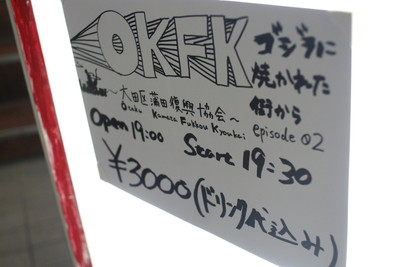 OKFK
ゴジラに
焼かれた
街から
episode 02
～大田区蒲田復興協会～
Ootaku Kamata Fukkou Kyoukai
Open 19:00 Start 19:30
¥3000(ドリンク代込み)